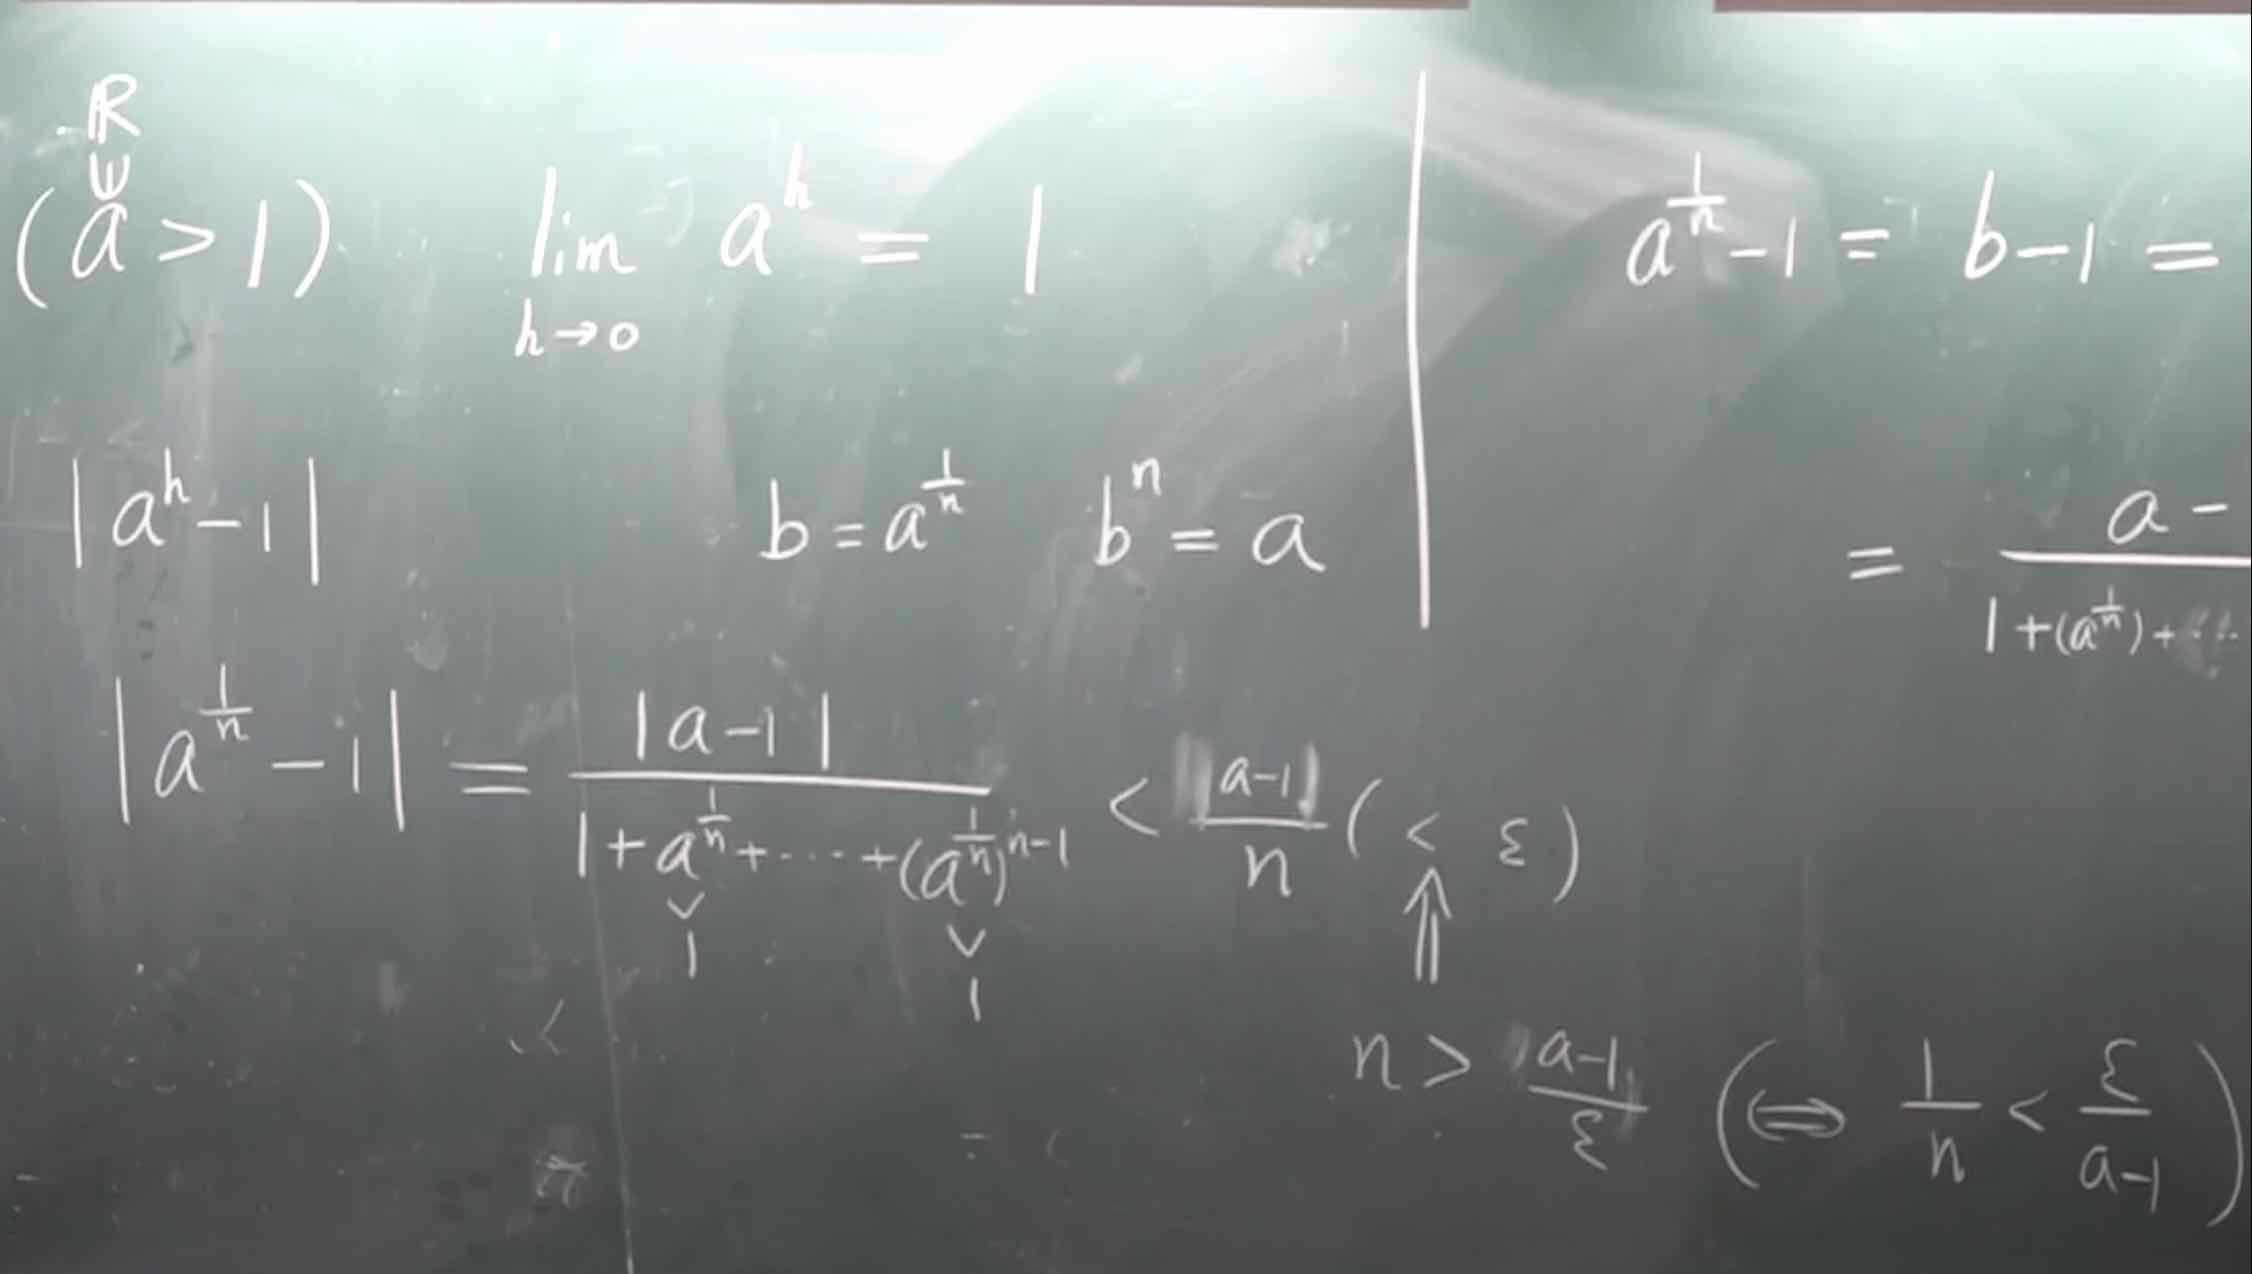 ℝ
∪
(a > 1) lim a^h = 1
h→0
|a^h - 1| b = a^{1/n} b^n = a
|a^{1/n} - 1| = |a-1| / (1 + a^{1/n} + ⋯ + (a^{1/n})^{n-1}) < |a-1| / n ( < ε )
∨ ∨
1 1
⇑
n > a-1 / ε ( ⇔ 1/n < ε / a-1 )
a^{1/n} - 1 = b - 1 =
= a - / 1 + (a^{1/n}) + ⋯